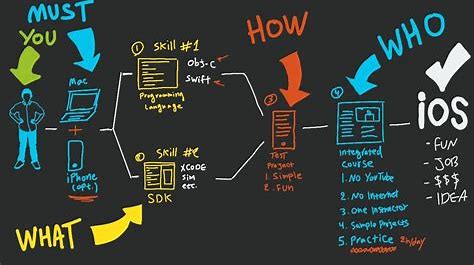 MUST
YOU
HOW
WHO
Mac
+
iPhone
(opt.)
WHAT
① Skill #1
Obj-C
Swift
Programming
Language
② Skill #2
XCODE
Sim
etc.
SDK
③
Test
Project
1. Simple
2. Fun
④
Integrated
Course
1. No YouTube
2. No Internet
3. One Instructor
4. Sample Projects
5. Practice 2h/day
iOS
- FUN
- JOB
- $$$
- IDEA